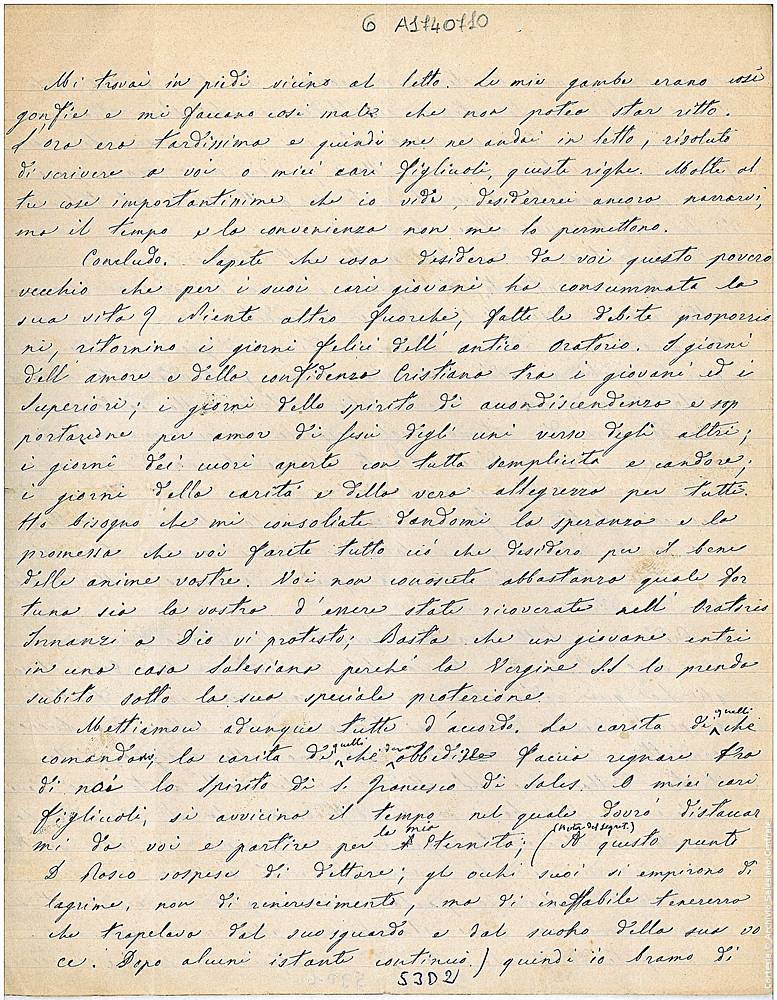 6 A1740710
Mi trovai in piedi vicino al letto. Le mie gambe erano così
gonfie e mi faceano così male che non potea star ritto.
L'ora era tardissima e quindi me ne andai in letto, risoluto
di scrivere a voi o miei cari figliuoli, queste righe. Molte al
tre cose importantissime che io vidi, desidererei ancora narrarvi,
ma il tempo e la convenienza non me lo permettono.
Concludo. Sapete che cosa desidera da voi questo povero
vecchio che per i suoi cari giovani ha consummata la
sua vita? Niente altro fuorchè, fatte le debite proporzio
ni, ritornino i giorni felici dell'antico Oratorio. I giorni
dell'amore e della confidenza Cristiana tra i giovani ed i
Superiori; i giorni dello spirito di accondiscendenza e sop
portazione per amor di Gesù degli uni verso degli altri;
i giorni dei cuori aperti con tutta semplicità e candore;
i giorni della carità e della vera allegrezza per tutti.
Ho bisogno che mi consoliate dandomi la speranza e la
promessa che voi farete tutto ciò che desidero per il bene
delle anime vostre. Voi non conoscete abbastanza quale for
tuna sia la vostra d'essere stati ricoverati nell'Oratorio
Innanzi a Dio vi protesto; Basta che un giovane entri
in una casa Salesiana perchè la Vergine SS lo prenda
subito sotto la sua speciale protezione.
Mettiamoci adunque tutti d'accordo. La carità di quelli che
comandano, la carità di quelli che devono obbedire faccia regnare fra
di noi lo spirito di S. Francesco di Sales. O miei cari
figliuoli, si avvicina il tempo nel quale dovrò distaccar
mi da voi e partire per la mia Eternità; (Nota del Segret.) (A questo punto
D Bosco sospese di dettare; gli occhi suoi si empirono di
lagrime, non di rincrescimento, ma di ineffabile tenerezza
che trapelava dal suo sguardo e dal suono della sua vo
ce. Dopo alcuni istanti continuò.) quindi io bramo di
53D2
Cortesia © Archivio Salesiano Centrale